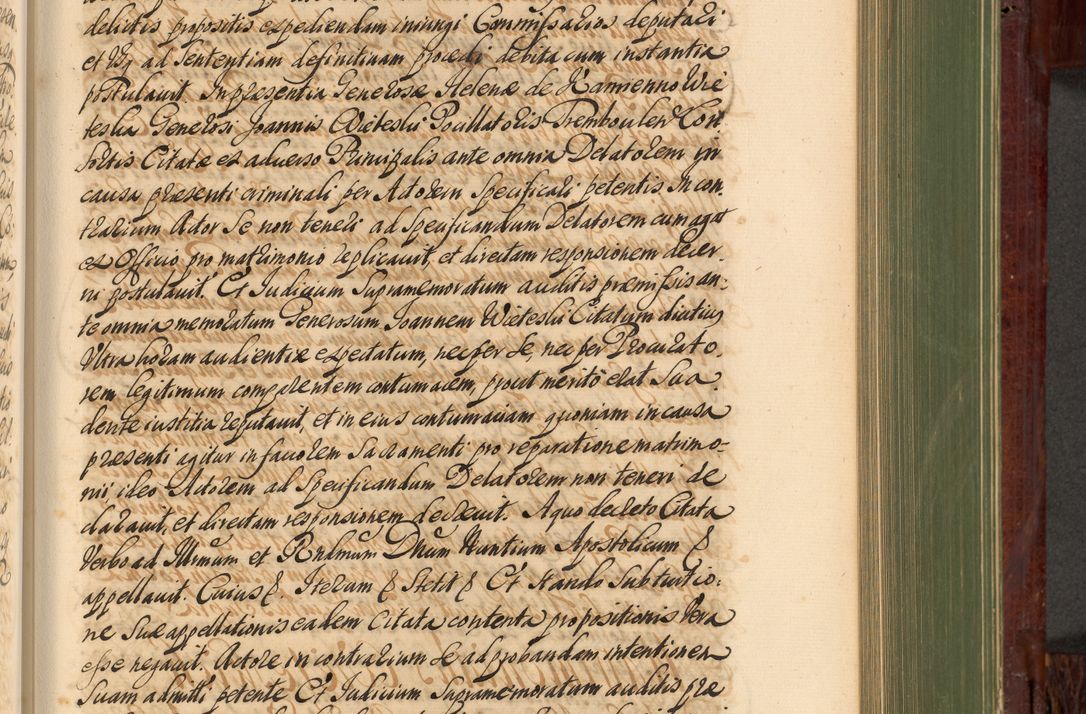 delictis propositis expediendam iniungi Commissarios deputari
et Vti ad Sententiam definitiuam procedi debita cum instantia
postulauit. In praesentia Generosae Helenae de Kamienno Wie
teska Generosi Joannis Wieteski Pocillatoris Trembovlen Con
sortis Citatae ex aduerso Principalis ante omnia Delatorem in
causa praesenti criminali per Actorem Specificari petentis in con
trarium Actor Se non teneri ad Specificandum Delatorem cum agat
ex Officio pro matrimonio replicauit, et directam responsionem decer
ni postulauit. Et Iudicium Supramemoratum auditis praemissis an-
te omnia memoratum Generosum Joannem Wieteski Citatum diutius
Vltra horam audientiae expectatum, nec per Se, nec per Procurato-
rem legitimum comparentem contumacem, prout merito erat Sua
dente iustitia reputauit, et in eius contumaciam quoniam in causa
praesenti agitur in fauorem Sacramenti pro reparatione matrimo-
nii, ideo Actorem ad Specificandum Delatorem non teneri de
clarauit, et directam responsionem decreuit. A quo decreto Citata
Verbo ad Illmum et Rndmum Dnum Nuntium Apostolicum &
appellauit. Cuius &. Iterum & Stetit & Et stando Sub tuitio-
ne Suae appellationis eadem Citata contenta propositionis Vera
esse negauit. Actore in contrarium Se ad probandam intentionem
Suam admitti petente Et Iudicium Supramemoratum auditis prae